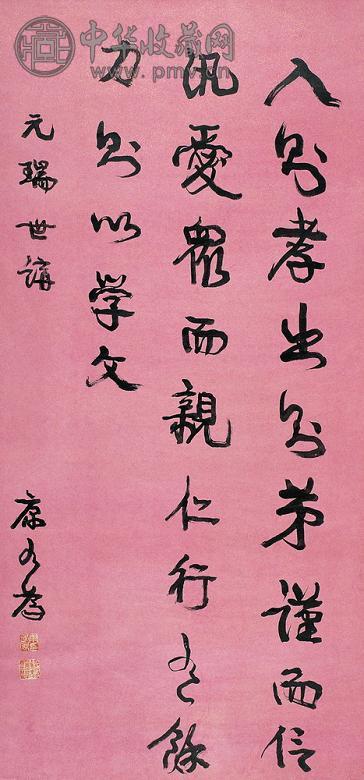 入则孝出则弟謹而信
汎愛眾而親仁行有餘
力则以学文
元瑞世講
康有為
中华收藏网
www.pmv.cn